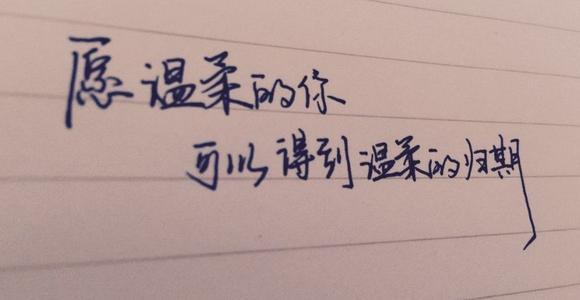 愿温柔的你
可以得到温柔的归期